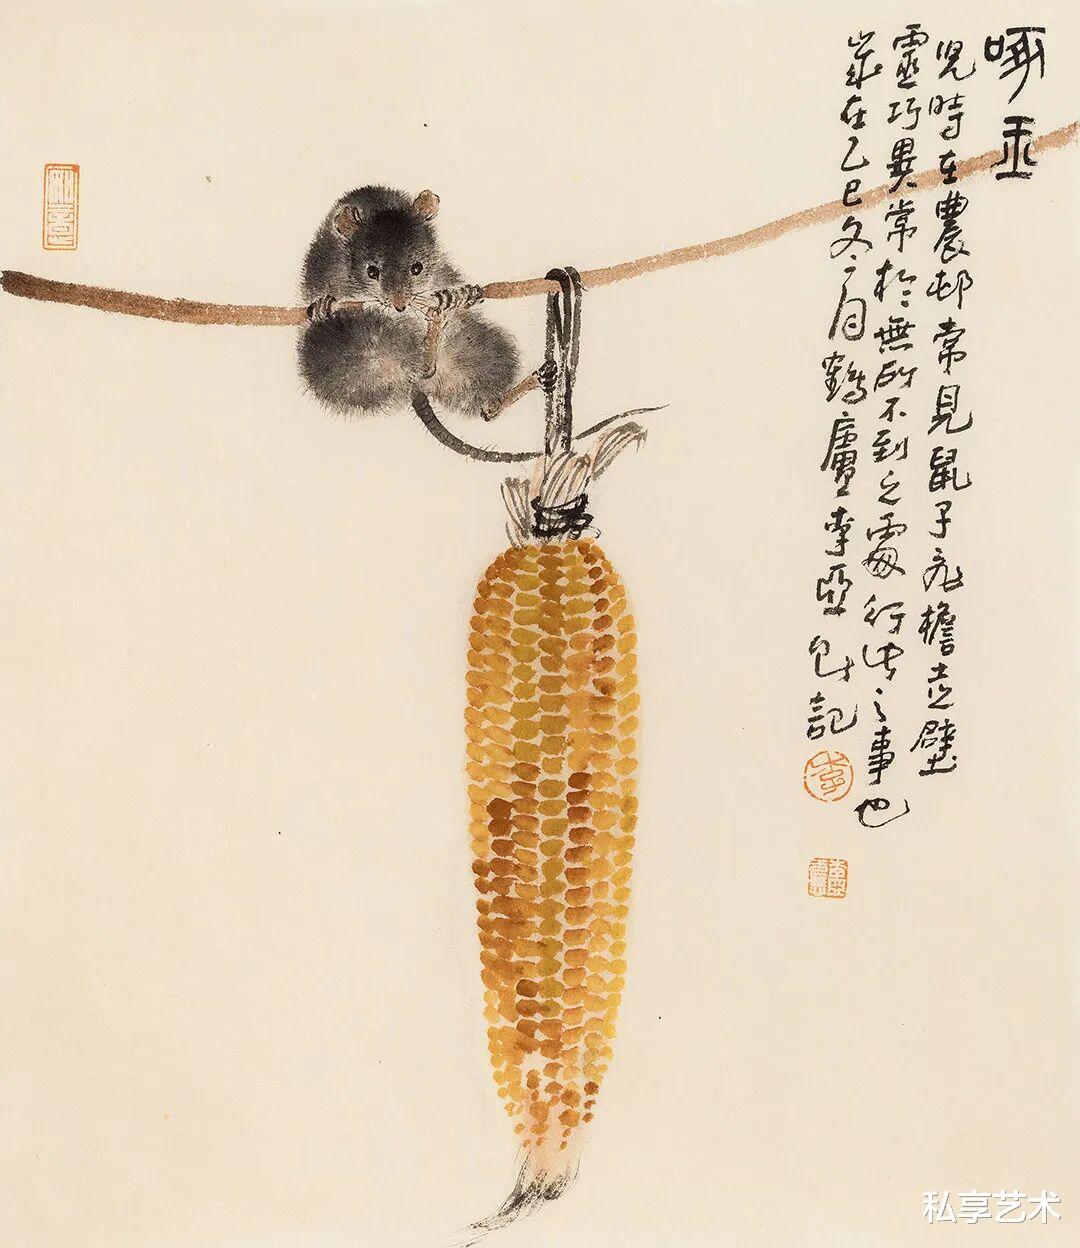 啄玉
兒時在農邨常見鼠子飛檐走壁
靈巧異常於無所不到之處行之事也
歲在乙巳冬月鶴廬李亞記
李
私享艺术